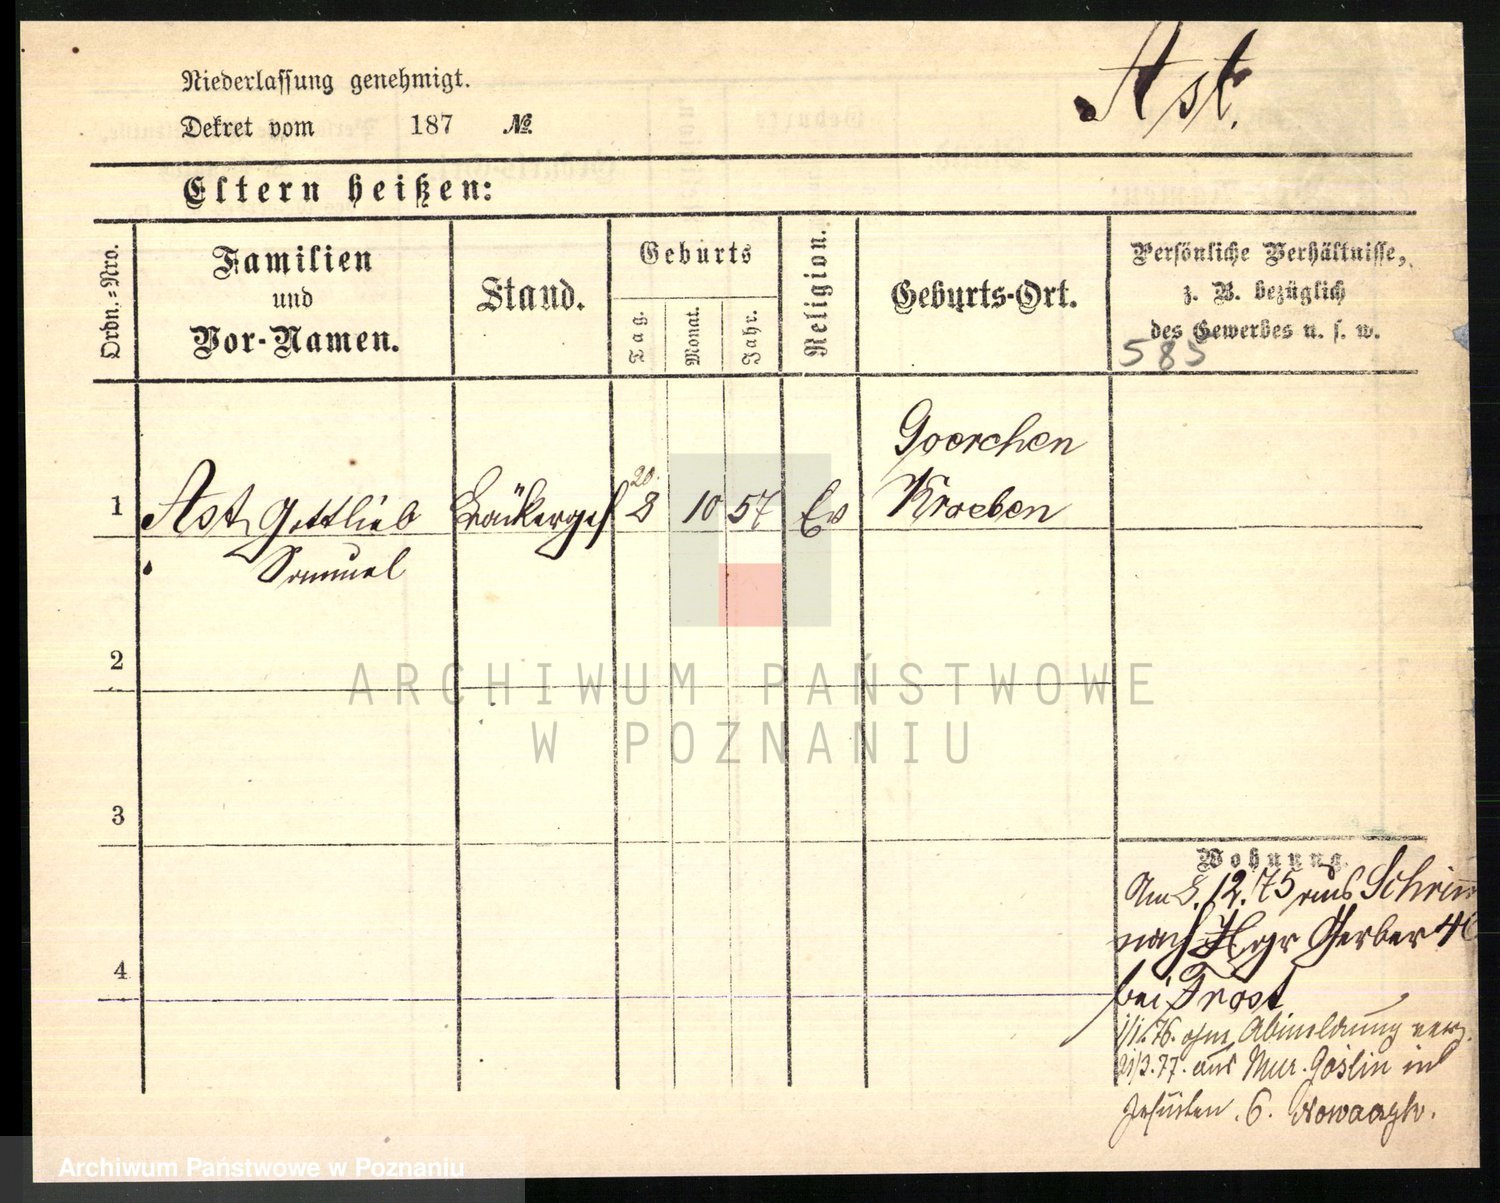 Niederlassung genehmigt.
Ast.
Dekret vom 187 №
Eltern heißen:
Ordn.=Nro.
Familien
und
Vor-Namen.
Stand.
Geburts
Tag.
Monat.
Jahr.
Religion.
Geburts-Ort.
Persönliche Verhältnisse,
z. B. bezüglich
des Gewerbes u. s. w.
585
Goerchen
20.
1 Ast Gottlieb Bäckerges 8 10 57 Ev Kroeben
Samuel
2
ARCHIWUM PAŃSTWOWE
W POZNANIU
3
4
Wohnung
Am 8.12.75 aus Schrim
nach Gerber 40
bei Frost
1/1.76. ohne Abmeldung verz.
21/3.77. aus Mur. Goslin in
Jesuiten . 6.
Archiwum Państwowe w Poznaniu